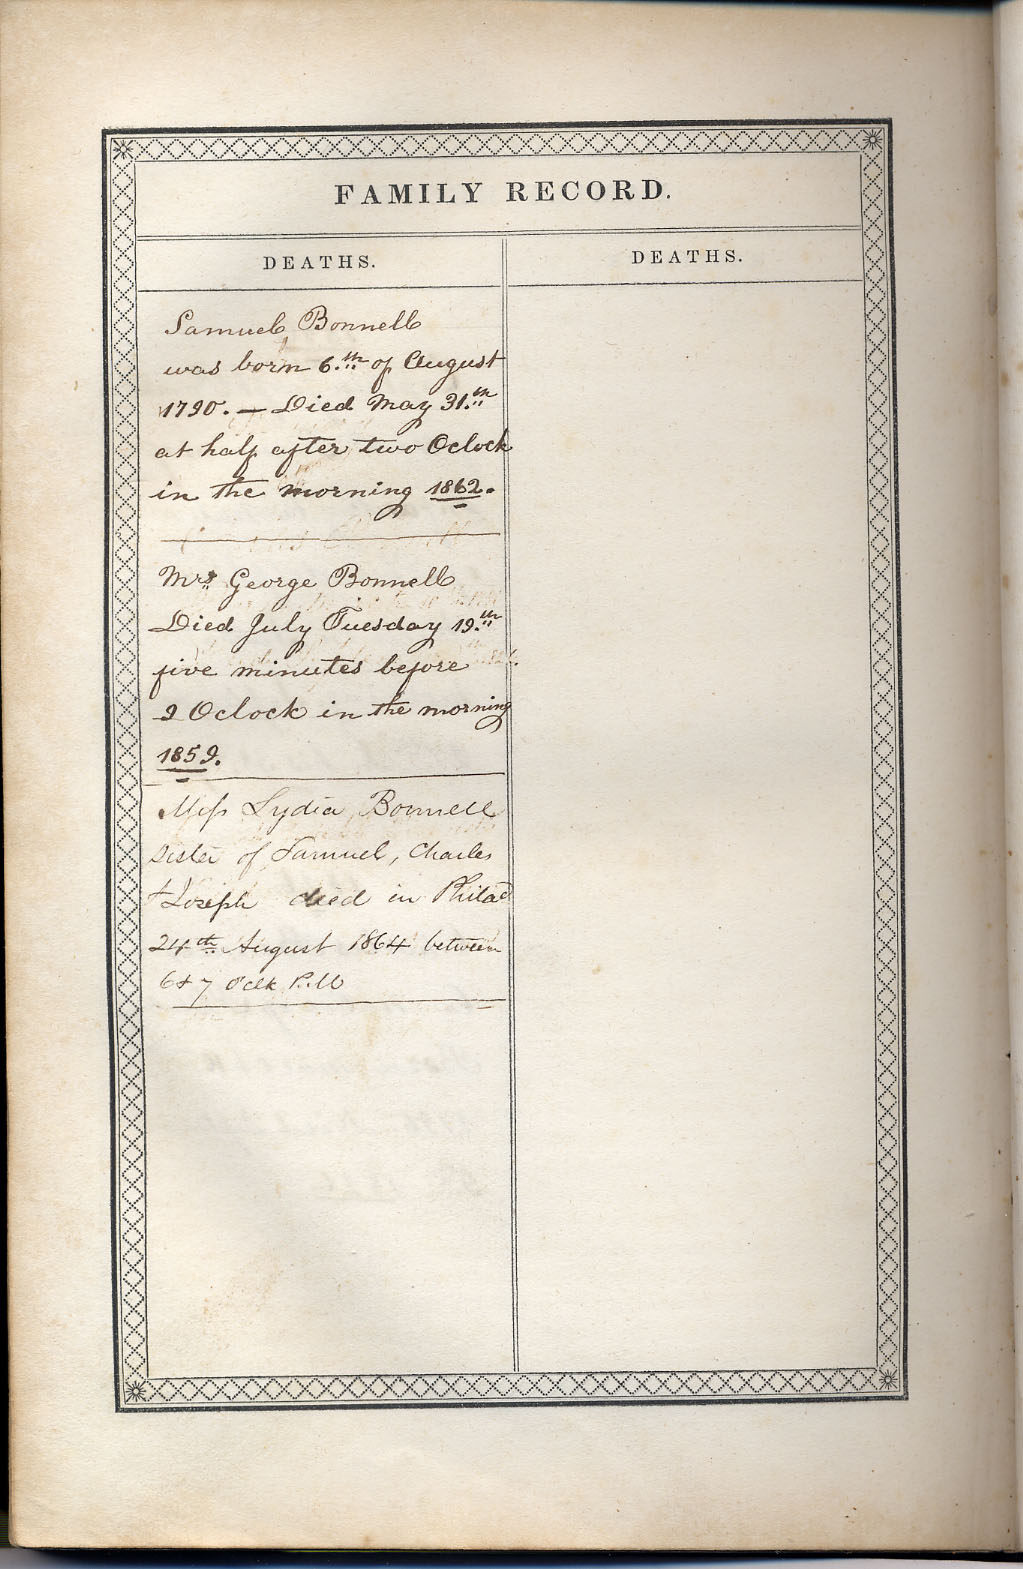 FAMILY RECORD.
DEATHS.
Samuel Bonnell
was born 6.th of August
1790. — Died May 31.th
at half after two Oclock
in the morning 1862.
Mrs. George Bonnell
Died July Tuesday 19.th
five minutes before
9 Oclock in the morning
1859.
Miss Lydia Bonnell
sister of Samuel, Charles
& Joseph died in Philad
24th August 1864 between
6 & 7 oclk P.M
DEATHS.